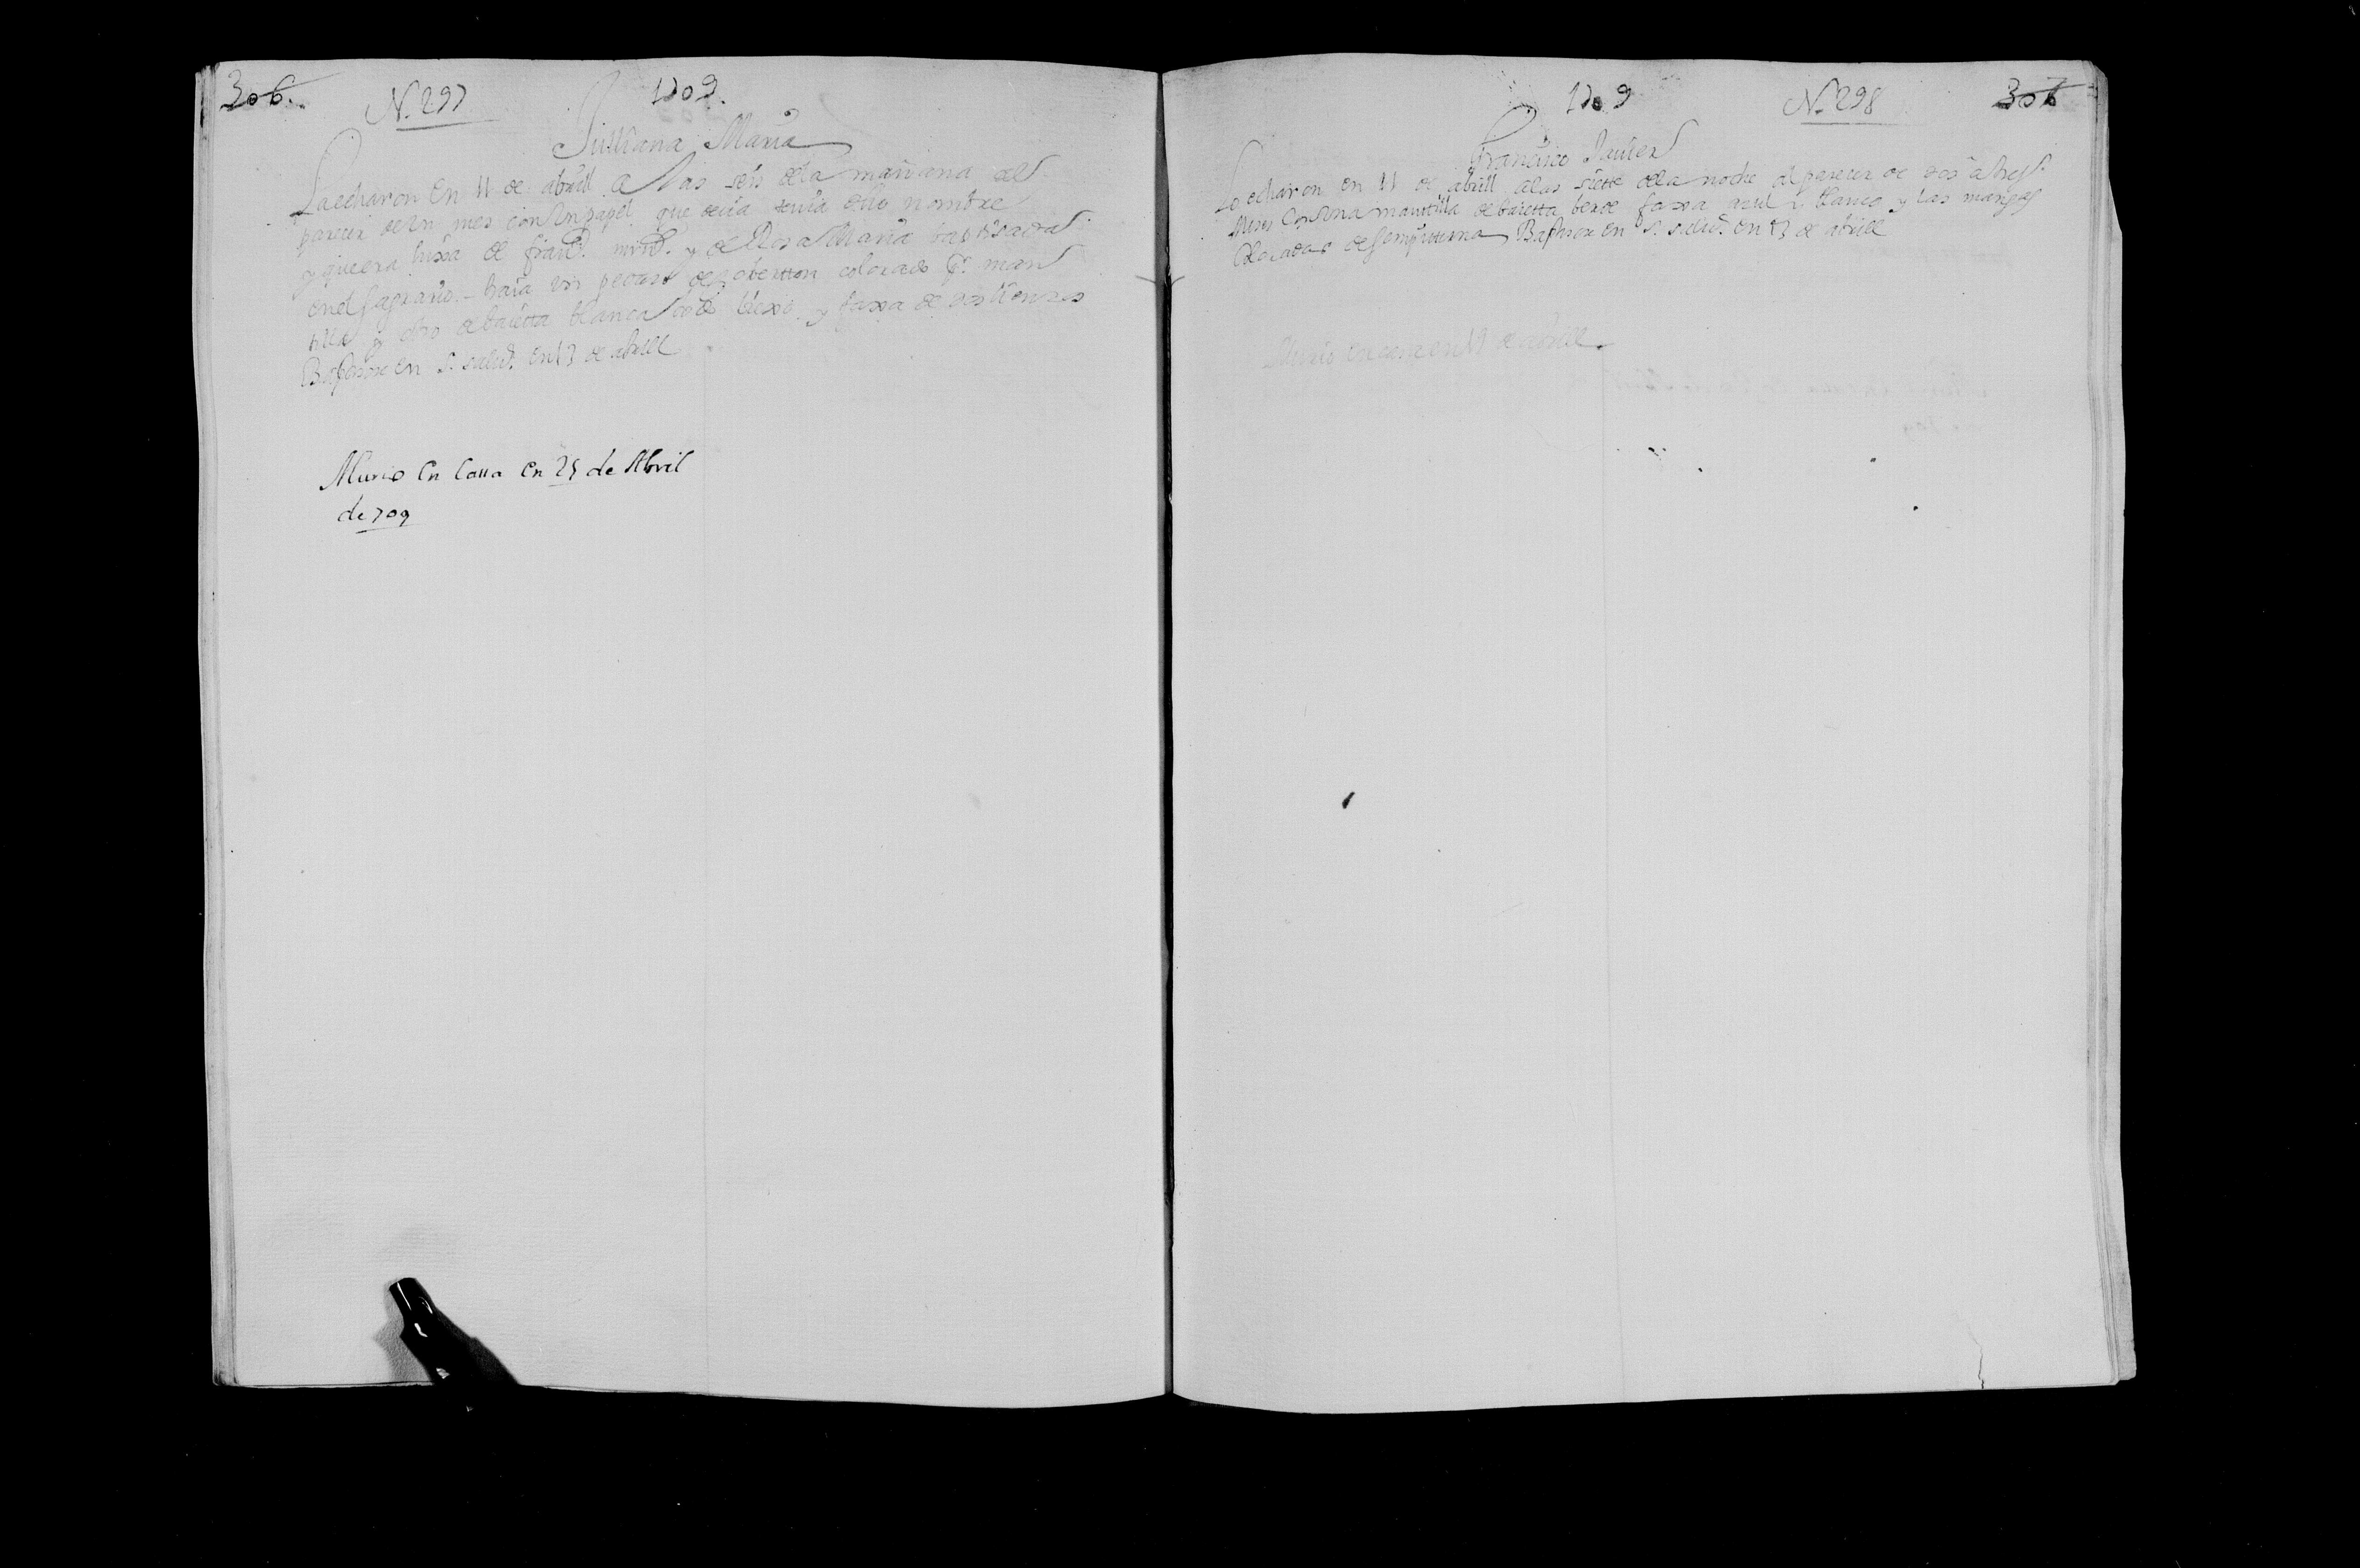 306.
N. 297
1709.
Julliana Maria
La echaron en 11 de abrill a las seis de la mañana al
parecer de un mes con un papel que decia tenia dho nombre
y que era hixa de y de Rosa Maria baptisada
en el sagrario - traia un pedaso de cobertton colorado pr. man
tilla y otro de baietta blanca todo biexo y faxa de dos liensos
Bapsose en S. salud. en 13 de abrill
Murio en Cassa en 25 de Abril
de 709
1709
N. 298
307
Francisco Xavier
Lo echaron en 11 de abrill a las siette de la noche al parecer de dos a tres
Meses con una manttilla de baietta berde faxa azul i blanco y las mangas
coloradas de sempitterna Bapsose en S. salud. en 13 de abrill
Murio en casa en 19 de abrill